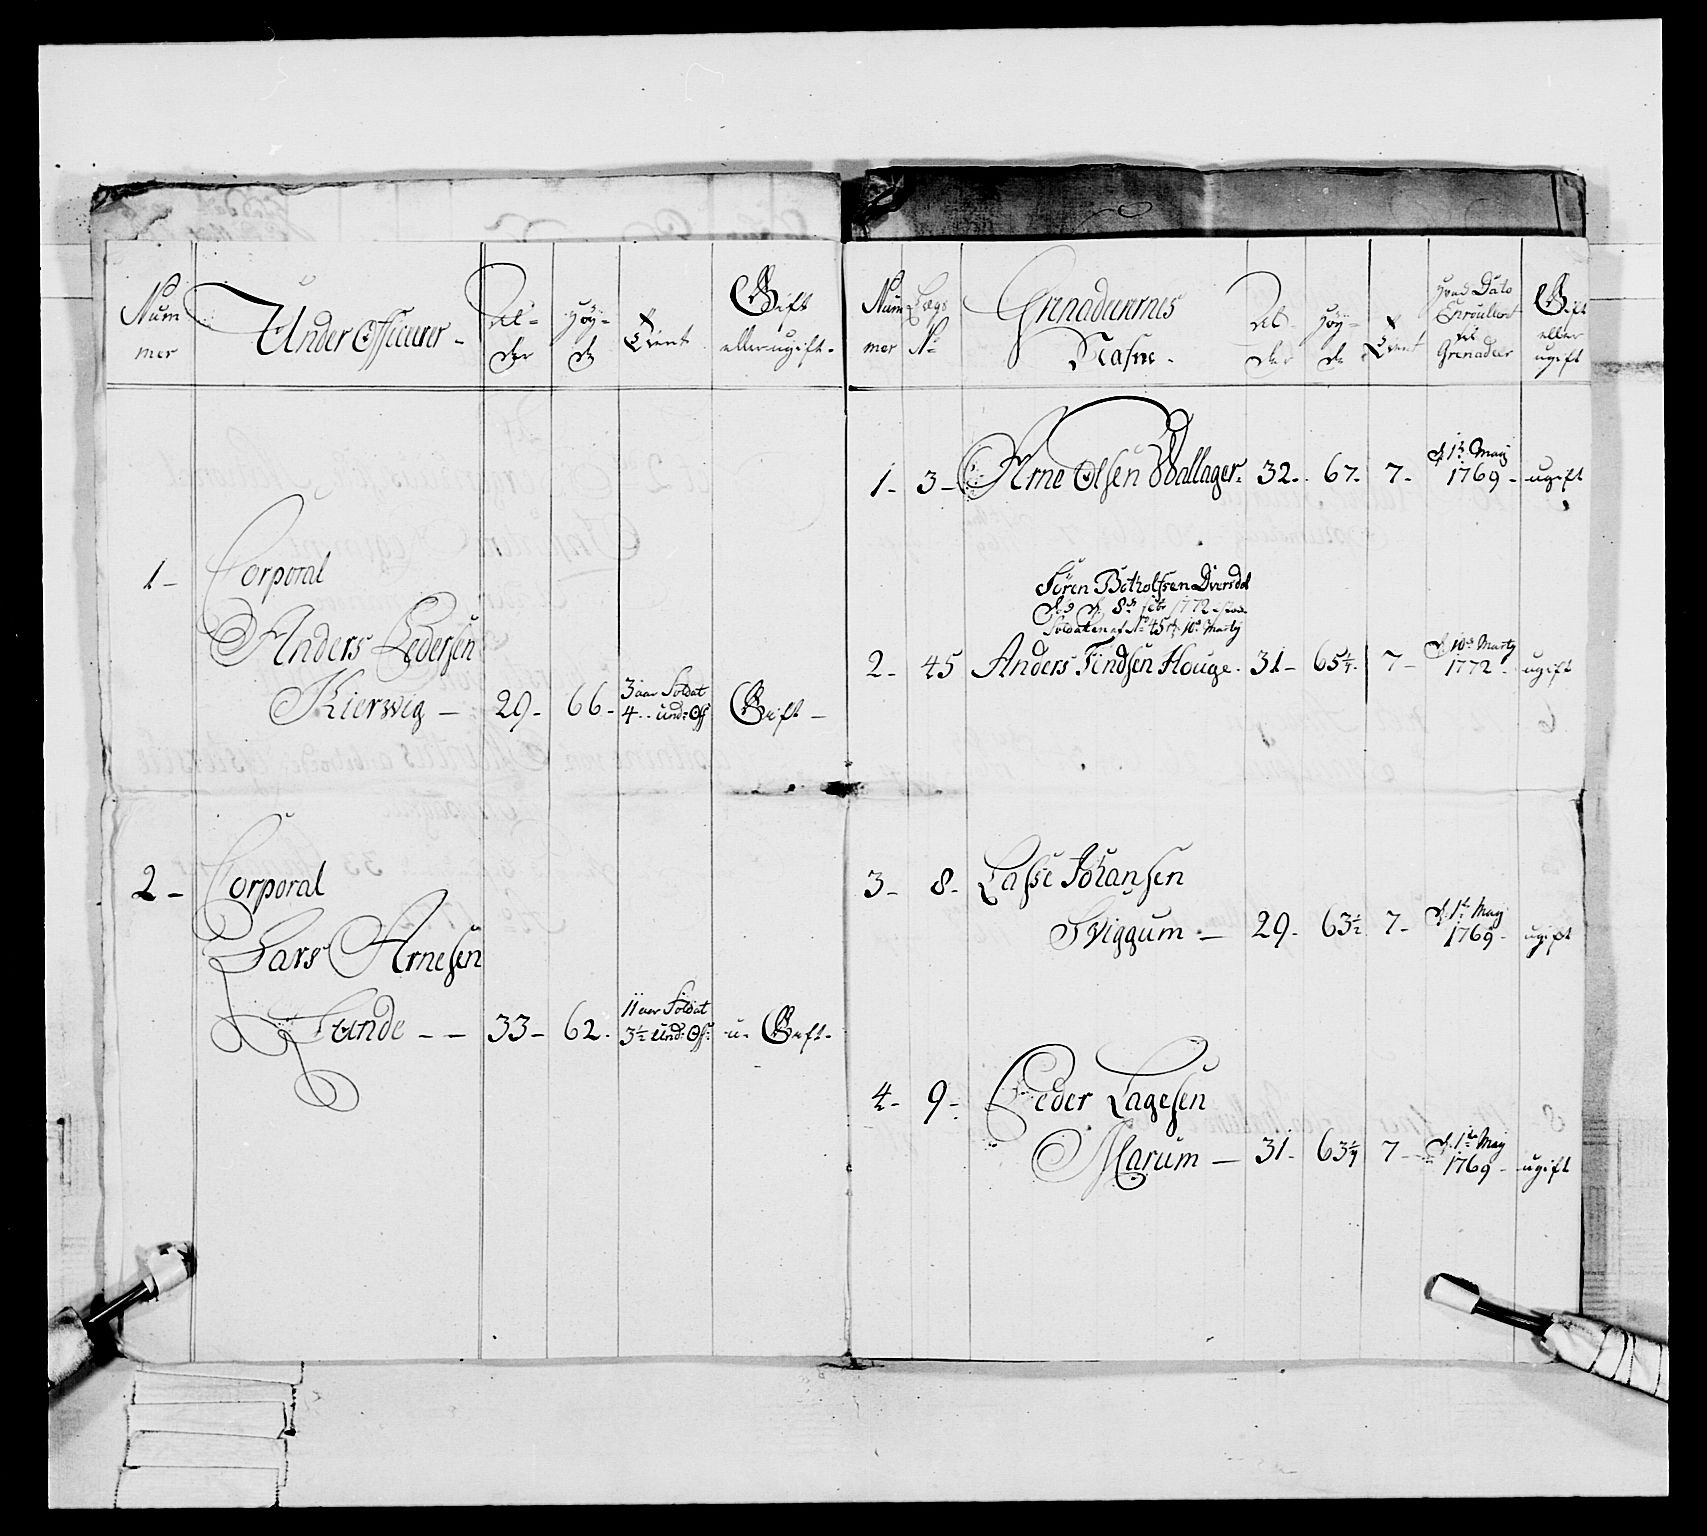 Num
mer
Under Officerer -
Al-
der
Høy-
de
Tient
Gift
eller ugift.
1 -
Corporal
Anders Pedersen
Kierwig - 29 - 66 - 3 aar Soldat
4 .. und: Off Gift -
2 -
Corporal
Lars Arnesen
Lunde - - 33 - 62 - 11 aar Soldat
3½ Und: Off: u - Gift -
Num
mer
Lægs
No
Grenaderernes
Nafne -
Al-
der
Høy-
de
Tient
hvad Dato
Enroulert
til
Grenadeer
Gift
eller
ugift
1 - 3 - Arne Olsen Wallager - 32 - 67 - 7 - d 1te Maij
1769 - ugift
Søren Botholfsen Dversdal
død d 8de febr 1772
Soldaten af No 45 d 10de Martij
2 - 45 Anders Findsen Houge - 31 - 65¼ - 7 - d 10de Martij
1772 - ugift
3 - 8 - Lasse Johansen
Sviggum - 29 - 63½ 7 - d 1te Maij
1769 - ugift
4 - 9 - Peder Lagesen
Marum - 31 - 63¼ 7 - d. 1te Maij
1769 - ugift